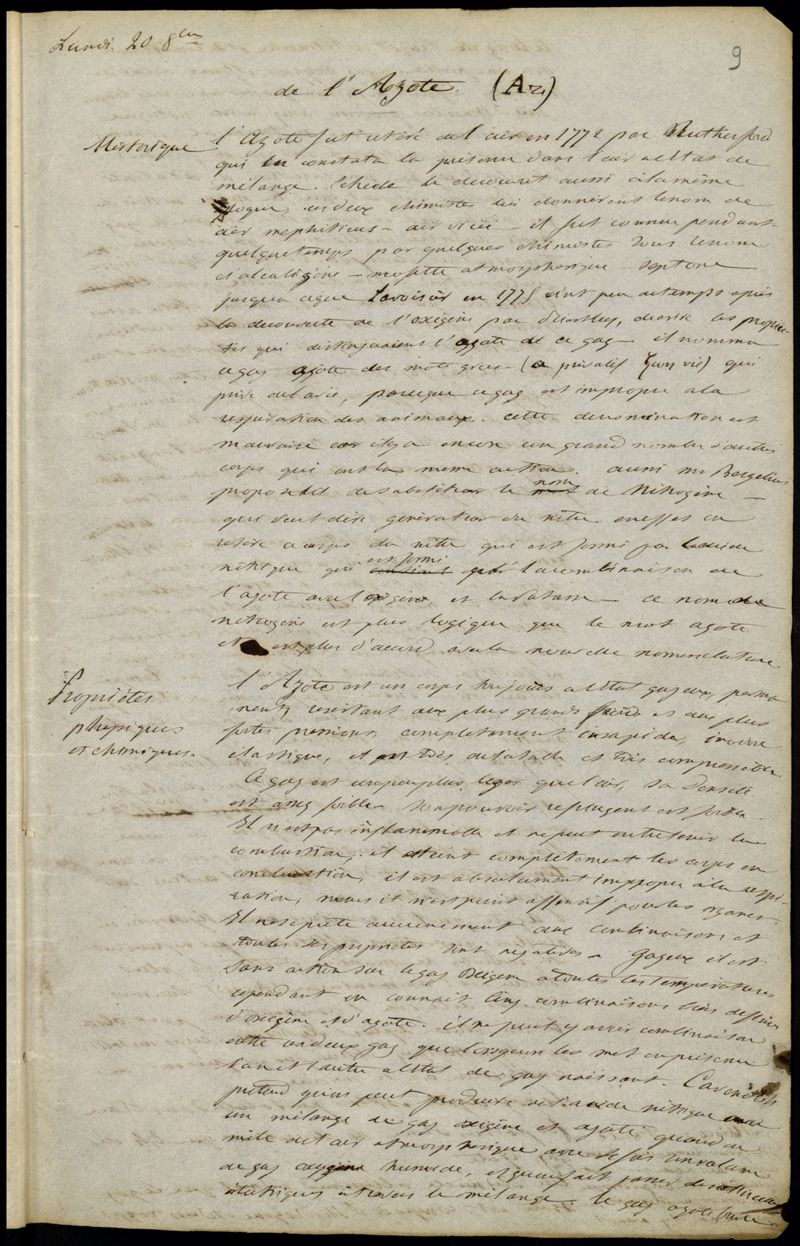 Lundi 20 8bre
9
de l'Azote. (Az)
Historique
l'Azote fut retiré de l'air en 1772 par Rutherford
qui en constata la présence dans l'air a l'état de
mélange. Schede le decouvrit aussi a la même
époque, ces deux chimistes lui donnèrent le nom de
aër mephiticus - air vicié - il fut connu pendant
quelque temps par quelques chimistes sous le nom
d'alcaligène - mofette atmospherique - septone
jusqu'a ce que Lavoisier en 1775 vint peu de temps après
la decouverte de l'oxigène par Priestley, decrire les proprie-
tés qui distinguaient l'azote de ce gaz - il nomma
ce gaz azote des mots grecs (a privatif ζωη vie) qui
prive de la vie, parceque ce gaz est impropre a la
respiration des animaux. cette denomination est
mauvaise car il y a encore un grand nombre d'autres
corps qui ont la meme action. aussi mr Berzelius
proposa-t-il de substituer le nom de Nitrogène -
qui veut dire générateur du nitre. en effet on
retire ce corps du nitre qui est formé par l'acide
nitrique qui est formé par la combinaison de
l'azote avec l'oxigène, et la potasse - ce nom de
nitrogène est plus logique que le mot azote
et est plus d'accord avec la nouvelle nomenclature
Propriétés
physiques
et chimiques.
l'Azote est un corps toujours a l'état gazeux, perma-
nent, resistant aux plus grands froids et aux plus
fortes pressions, completement insapide, inodore
élastique, et très dilatable et très compressible
Ce gaz est un peu plus leger que l'air, sa densité
est assez faible. Son pouvoir refringent est faible.
Il n'est pas inflammable et ne peut entretenir la
combustion, il eteint complètement les corps en
combustion, il est absolument impropre a la respi-
ration, mais il n'est point offensif pour les organes.
Il ne se prete aucunement aux combinaisons et
toutes ses proprietés sont négatives. Gazeux il est
sans action sur le gaz oxigène a toutes les temperatures
cependant on connait cinq combinaisons bien definies
d'oxigène et d'azote. il ne peut y avoir combinaison
entre ces deux gaz que lorsqu'on les met en présence
l'un et l'autre a l'état de gaz naissant. Cavendish
pretend qu'on peut produire de l'acide nitrique avec
un mélange de gaz oxigène et azote quand on
mêle de l'air atmospherique avec le fois son volume
de gaz oxygène humide, et qu'on fait passer des etincelles
électriques a travers le mélange. le gaz azote